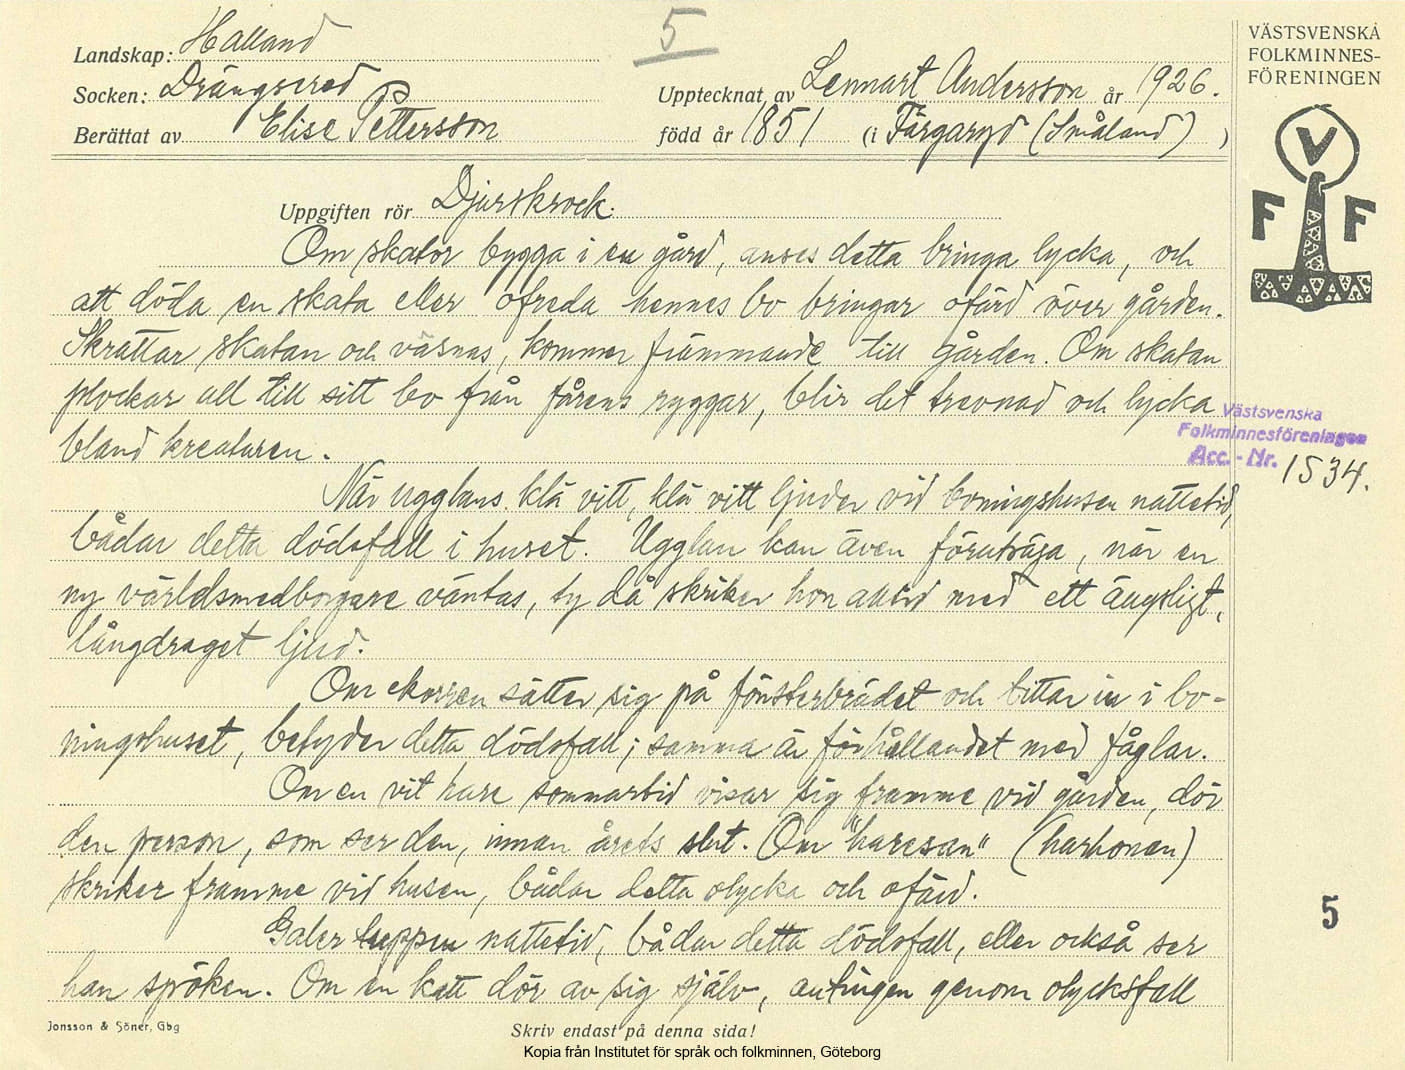 5
VÄSTSVENSKA
FOLKMINNES-
FÖRENINGEN
V
F F
Landskap: Halland
Socken: Drängsered
Upptecknat av Lennart Andersson år 1926.
Berättat av Elise Pettersson född år 1851 (i Färgaryd (Småland) )
Uppgiften rör Djurskrock.
Om skator bygga i en gård, anses detta bringa lycka, och
att döda en skata eller ofreda hennes bo bringar ofärd över gården.
Skrattar skatan och väsnas, kommer främmande till gården. Om skatan
plockar ull till sitt bo från fårens ryggar, blir det trevnad och lycka
bland kreaturen.
Västsvenska
Folkminnesföreningen
Acc.-Nr. 1534.
När ugglans klä vitt, klä vitt ljuder vid boningshusen nattetid,
bådar detta dödsfall i huset. Ugglan kan även förutsäga, när en
ny världsmedborgare väntas, ty då skriker hon alltid med ett ängsligt,
långdraget ljud.
Om ekorren sätter sig på fönsterbrädet och tittar in i bo-
ningshuset, betyder detta dödsfall; samma är förhållandet med fåglar.
Om en vit hare sommartid visar sig framme vid gården, dör
den person, som ser den, innan årets slut. Om "haresan" (harhonan)
skriker framme vid husen, bådar detta olycka och ofärd.
5
Galer tuppen nattetid, bådar detta dödsfall, eller också ser
han spöken. Om en katt dör av sig själv, antingen genom olycksfall
Jonsson & Söner, Gbg
Skriv endast på denna sida!
Kopia från Institutet för språk och folkminnen, Göteborg